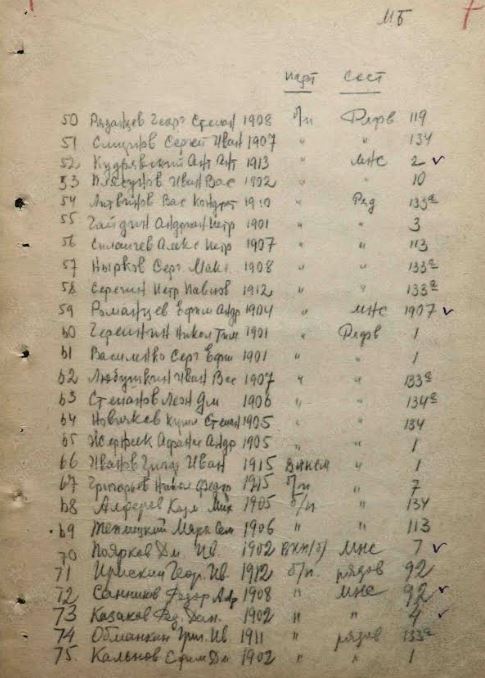 МБ
парт сост
50 Рязанцев Георг Степан 1908 б/п Рядв 119
51 Смирнов Сергей Иван 1907 " " 134
52 Кудрявский Ан Ан 1913 " мнс 2
53 Иван Вас 1902 " " 10
54 Литвинов Вас Кондрат 1910 " Ряд 133а
55 Гайдин Андриан Петр 1901 " " 3
56 Алекс Петр 1907 " " 113
57 Нырков Серг Макс 1908 " " 133а
58 Серегин Петр Павлов 1912 " " 133а
59 Романцев Ефим Андр 1904 " мнс 1907
60 Никол Тим 1901 " Рядв 1
61 Василенко Серг Ефим 1901 " " 1
62 Любушкин Иван Вас 1907 " " 133а
63 Степанов Леон Дм 1906 " " 134а
64 Новичков Степан 1905 " " 134
65 Афанас Андр 1905 " " 1
66 Иванов Григ Иван 1915 ВЛКСМ " 1
67 Григорьев Никол Федор 1915 б/п " 7
68 Алферов Мих 1905 б/п " 134
69 Марк Сам 1906 " " 113
70 Поярков Дм. Ив. 1902 ВКП/б/ мнс 7
71 Ирисхин Геор. Ив. 1912 б/п. рядов 92
72 Санников Федор Андр 1908 " мнс 92
73 Казаков Фед. Дан. 1902 " " 4
74 Обманкин Григ. Ив. 1911 " рядов 133а
75. Кальнов Ефим Дм 1902 " " 1